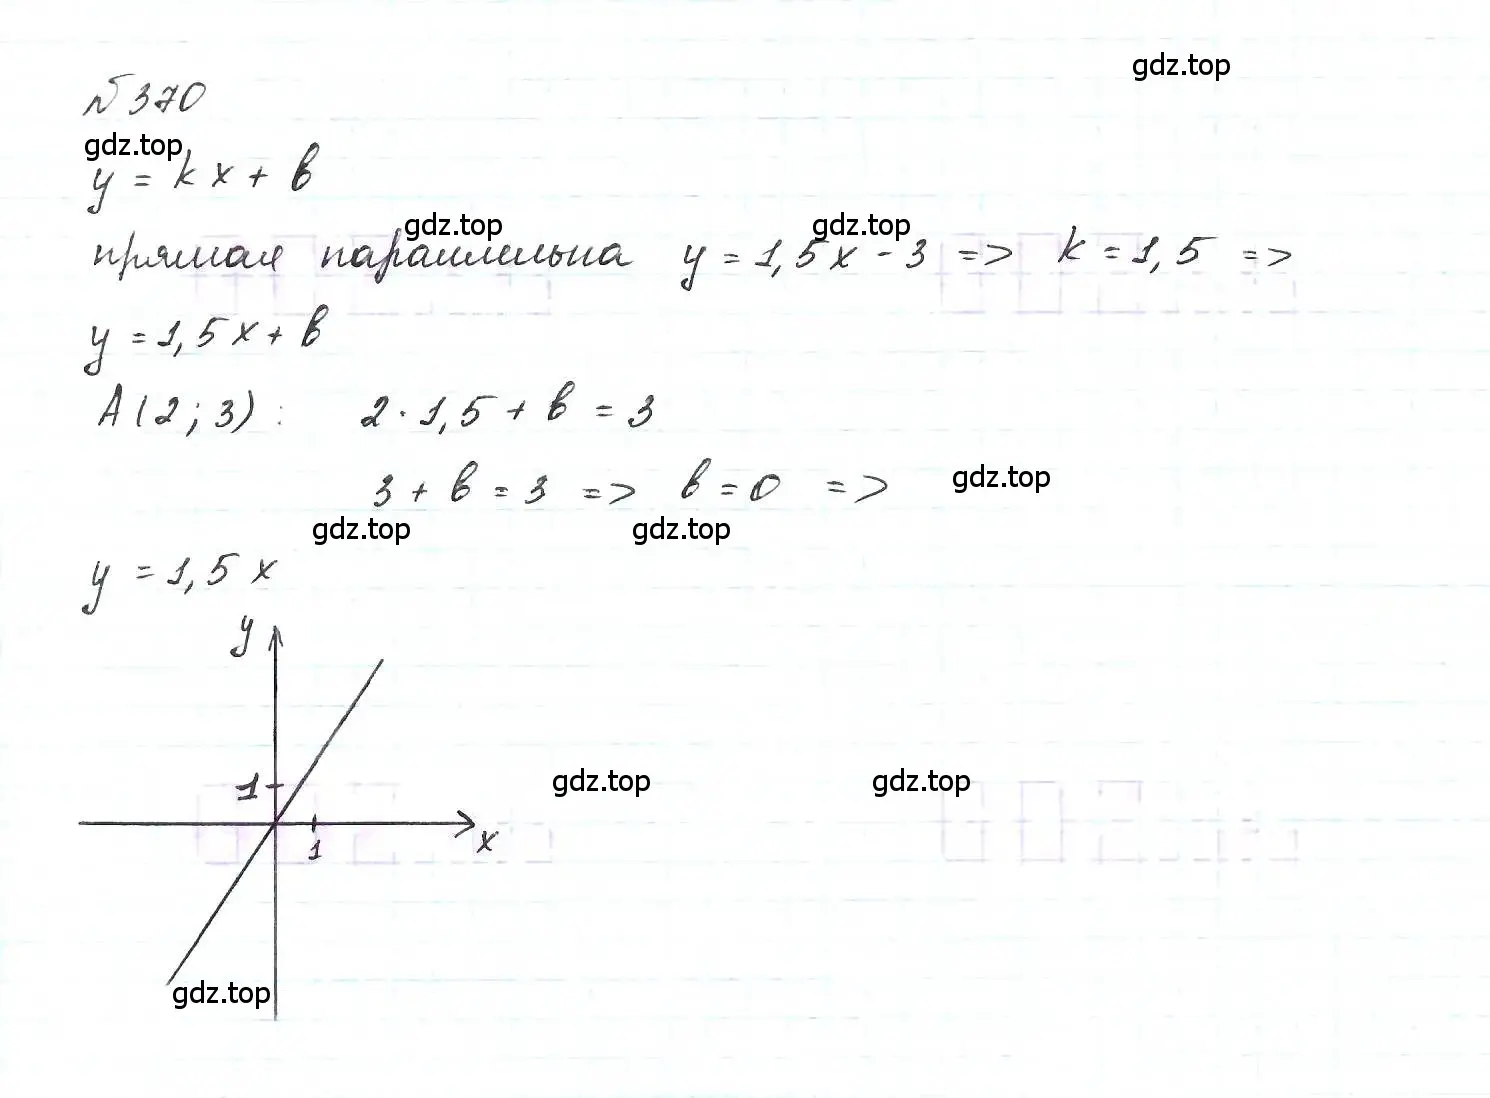 gdz.top
№ 370
gdz.top
y = kx + b
gdz.top gdz.top
прямая параллельна y = 1,5x - 3 => k = 1,5 =>
y = 1,5x + b
A(2; 3): 2 · 1,5 + b = 3
3 + b = 3 => b = 0 => gdz.top
gdz.top gdz.top
y = 1,5x
y
1
gdz.top gdz.top
x
1
gdz.top